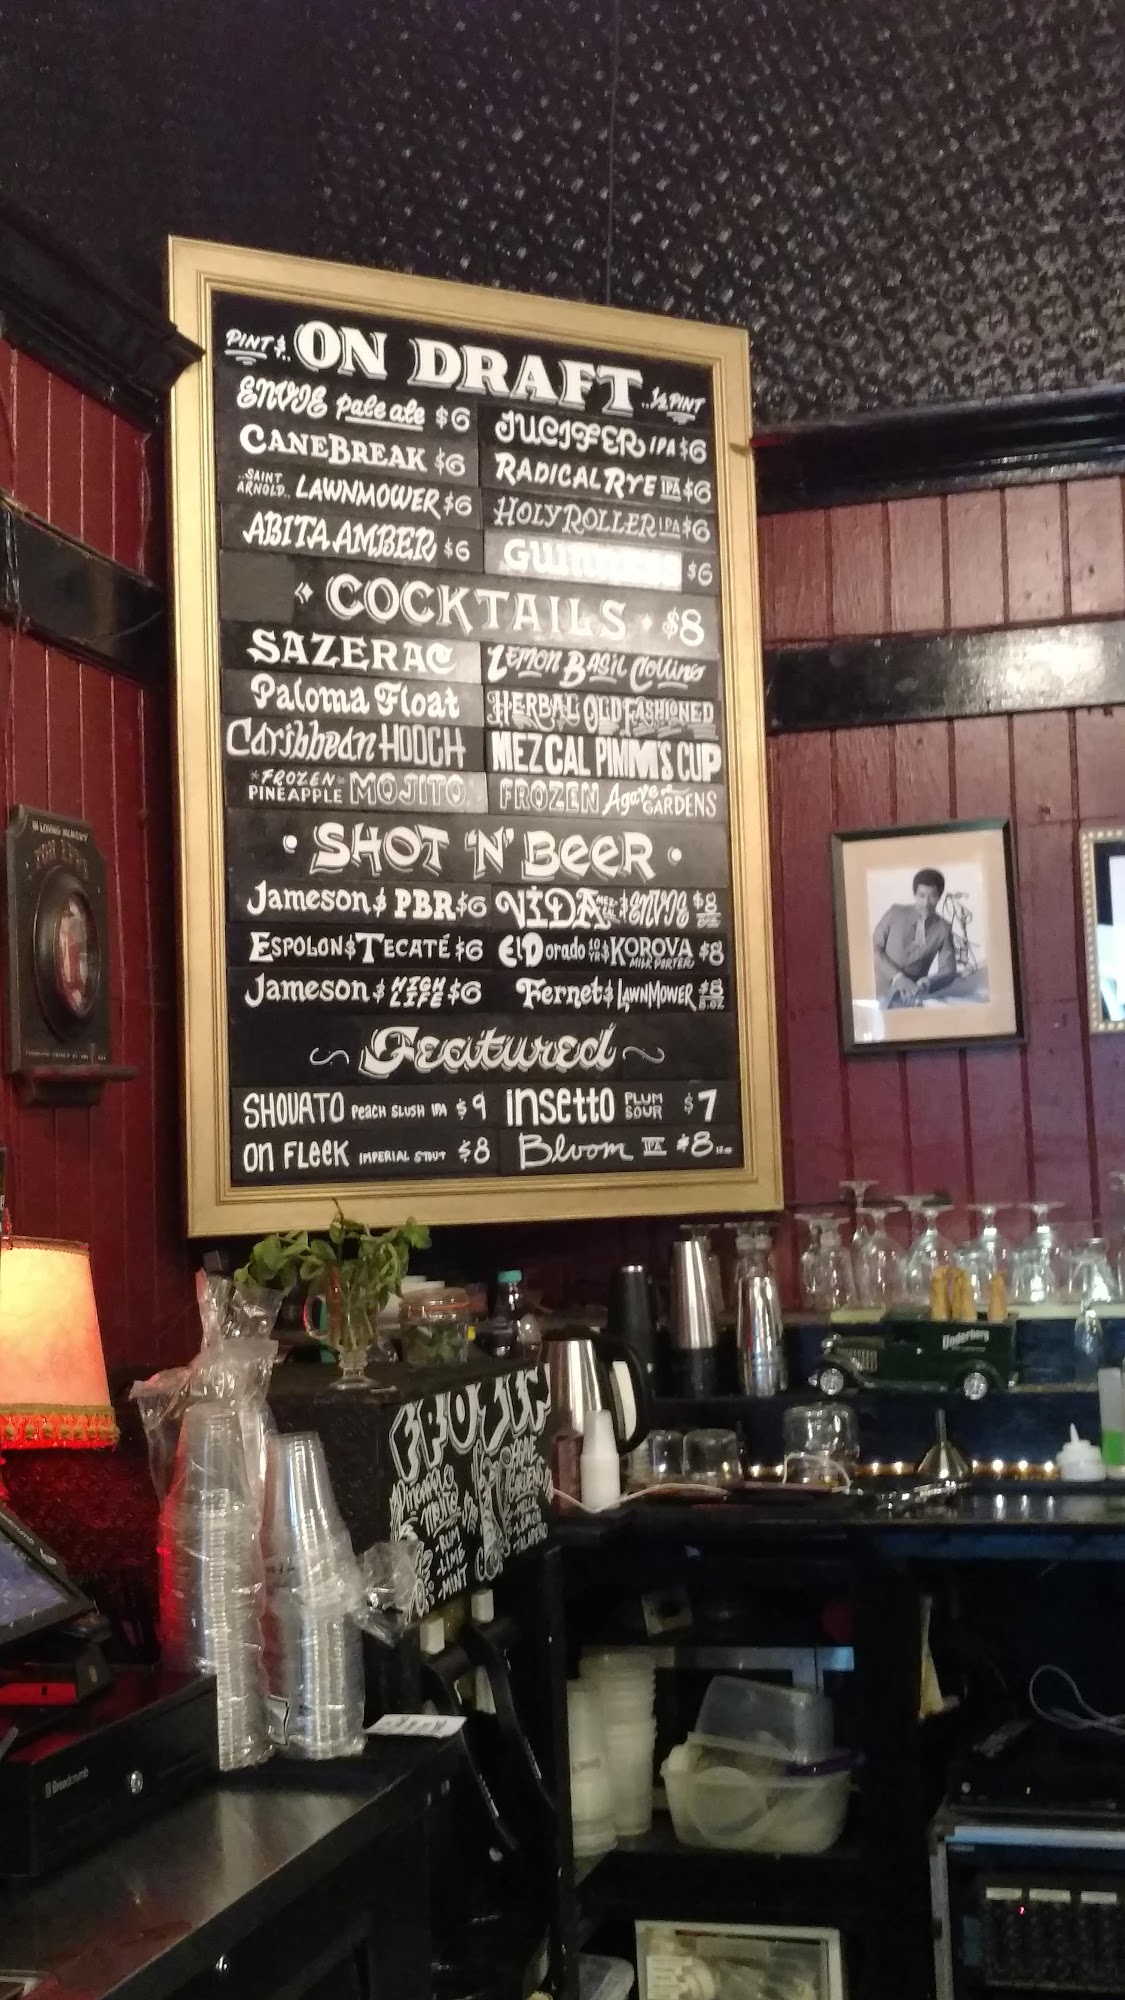 PINT $.. ON DRAFT ..½ PINT
ENVIE pale ale $6
JUCIFER IPA $6
CANEBREAK $6
RADICAL RYE IPA $6
..SAINT ARNOLD.. LAWNMOWER $6
HOLY ROLLER IPA $6
ABITA AMBER $6
GUINNESS $6
COCKTAILS · $8
SAZERAC
LEMON BASIL COLLINS
Paloma Float
HERBAL OLD FASHIONED
Caribbean HOOCH
MEZCAL PIMM'S CUP
*FROZEN* PINEAPPLE MOJITO
FROZEN Agave GARDENS
· SHOT 'N' BEER ·
Jameson & PBR $6
VIDA MEZCAL & ENVIE $8
ESPOLON & TECATÉ $6
El Dorado 10 YR & KOROVA MILK PORTER $8
Jameson & HIGH LIFE $6
Fernet & LAWNMOWER $8 8.OZ
Featured
SHOUATO PEACH SLUSH IPA $9
insetto PLUM SOUR $7
ON FLEEK IMPERIAL STOUT $8
Bloom IPA $8
IN LOVING MEMORY
Underberg
FROZEN
Pineapple Mojito
-RUM
-LIME
-MINT
AGAVE GARDENS
Breadcrumb